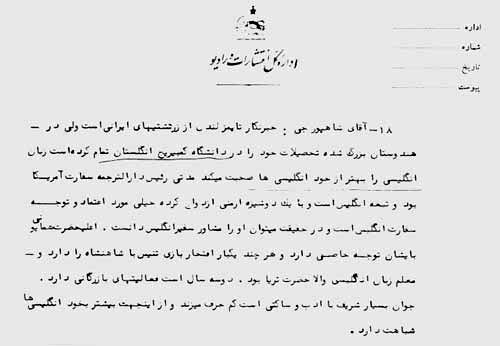 اداره
شماره
تاریخ
پیوست
اداره کل انتشارات و رادیو
۱۸ـ آقای شاهپور جی : خبرنگار تایمز لندن از زرتشتیهای ایرانی است ولی در ـ
هندوستان بزرگ شده تحصیلات خود را در دانشگاه کمبریج انگلستان تمام کرده است زبان
انگلیسی را بهتر از خود انگلیسی ها صحبت میکند مدتی رئیس دارالترجمه سفارت آمریکا
بود و تبعه انگلیس است و با یک دوشیزه ارمنی ازدواج کرده خیلی مورد اعتماد و توجه
سفارت انگلیس است و در حقیقت میتوان او را مشاور سفیر انگلیس دانست . اعلیحضرت همایونی
بایشان توجه خاصی دارد و هر چند یکبار افتخار بازی تنیس با شاهنشاه را دارد و ـ
معلم زبان انگلیسی والا حضرت ثریا بود . دو سه سال است فعالیتهای بازرگانی دارد .
جوان بسیار شریف با ادب و ساکتی است کم حرف میزند و از اینجهت بیشتر بخود انگلیسی ها
شباهت دارد .